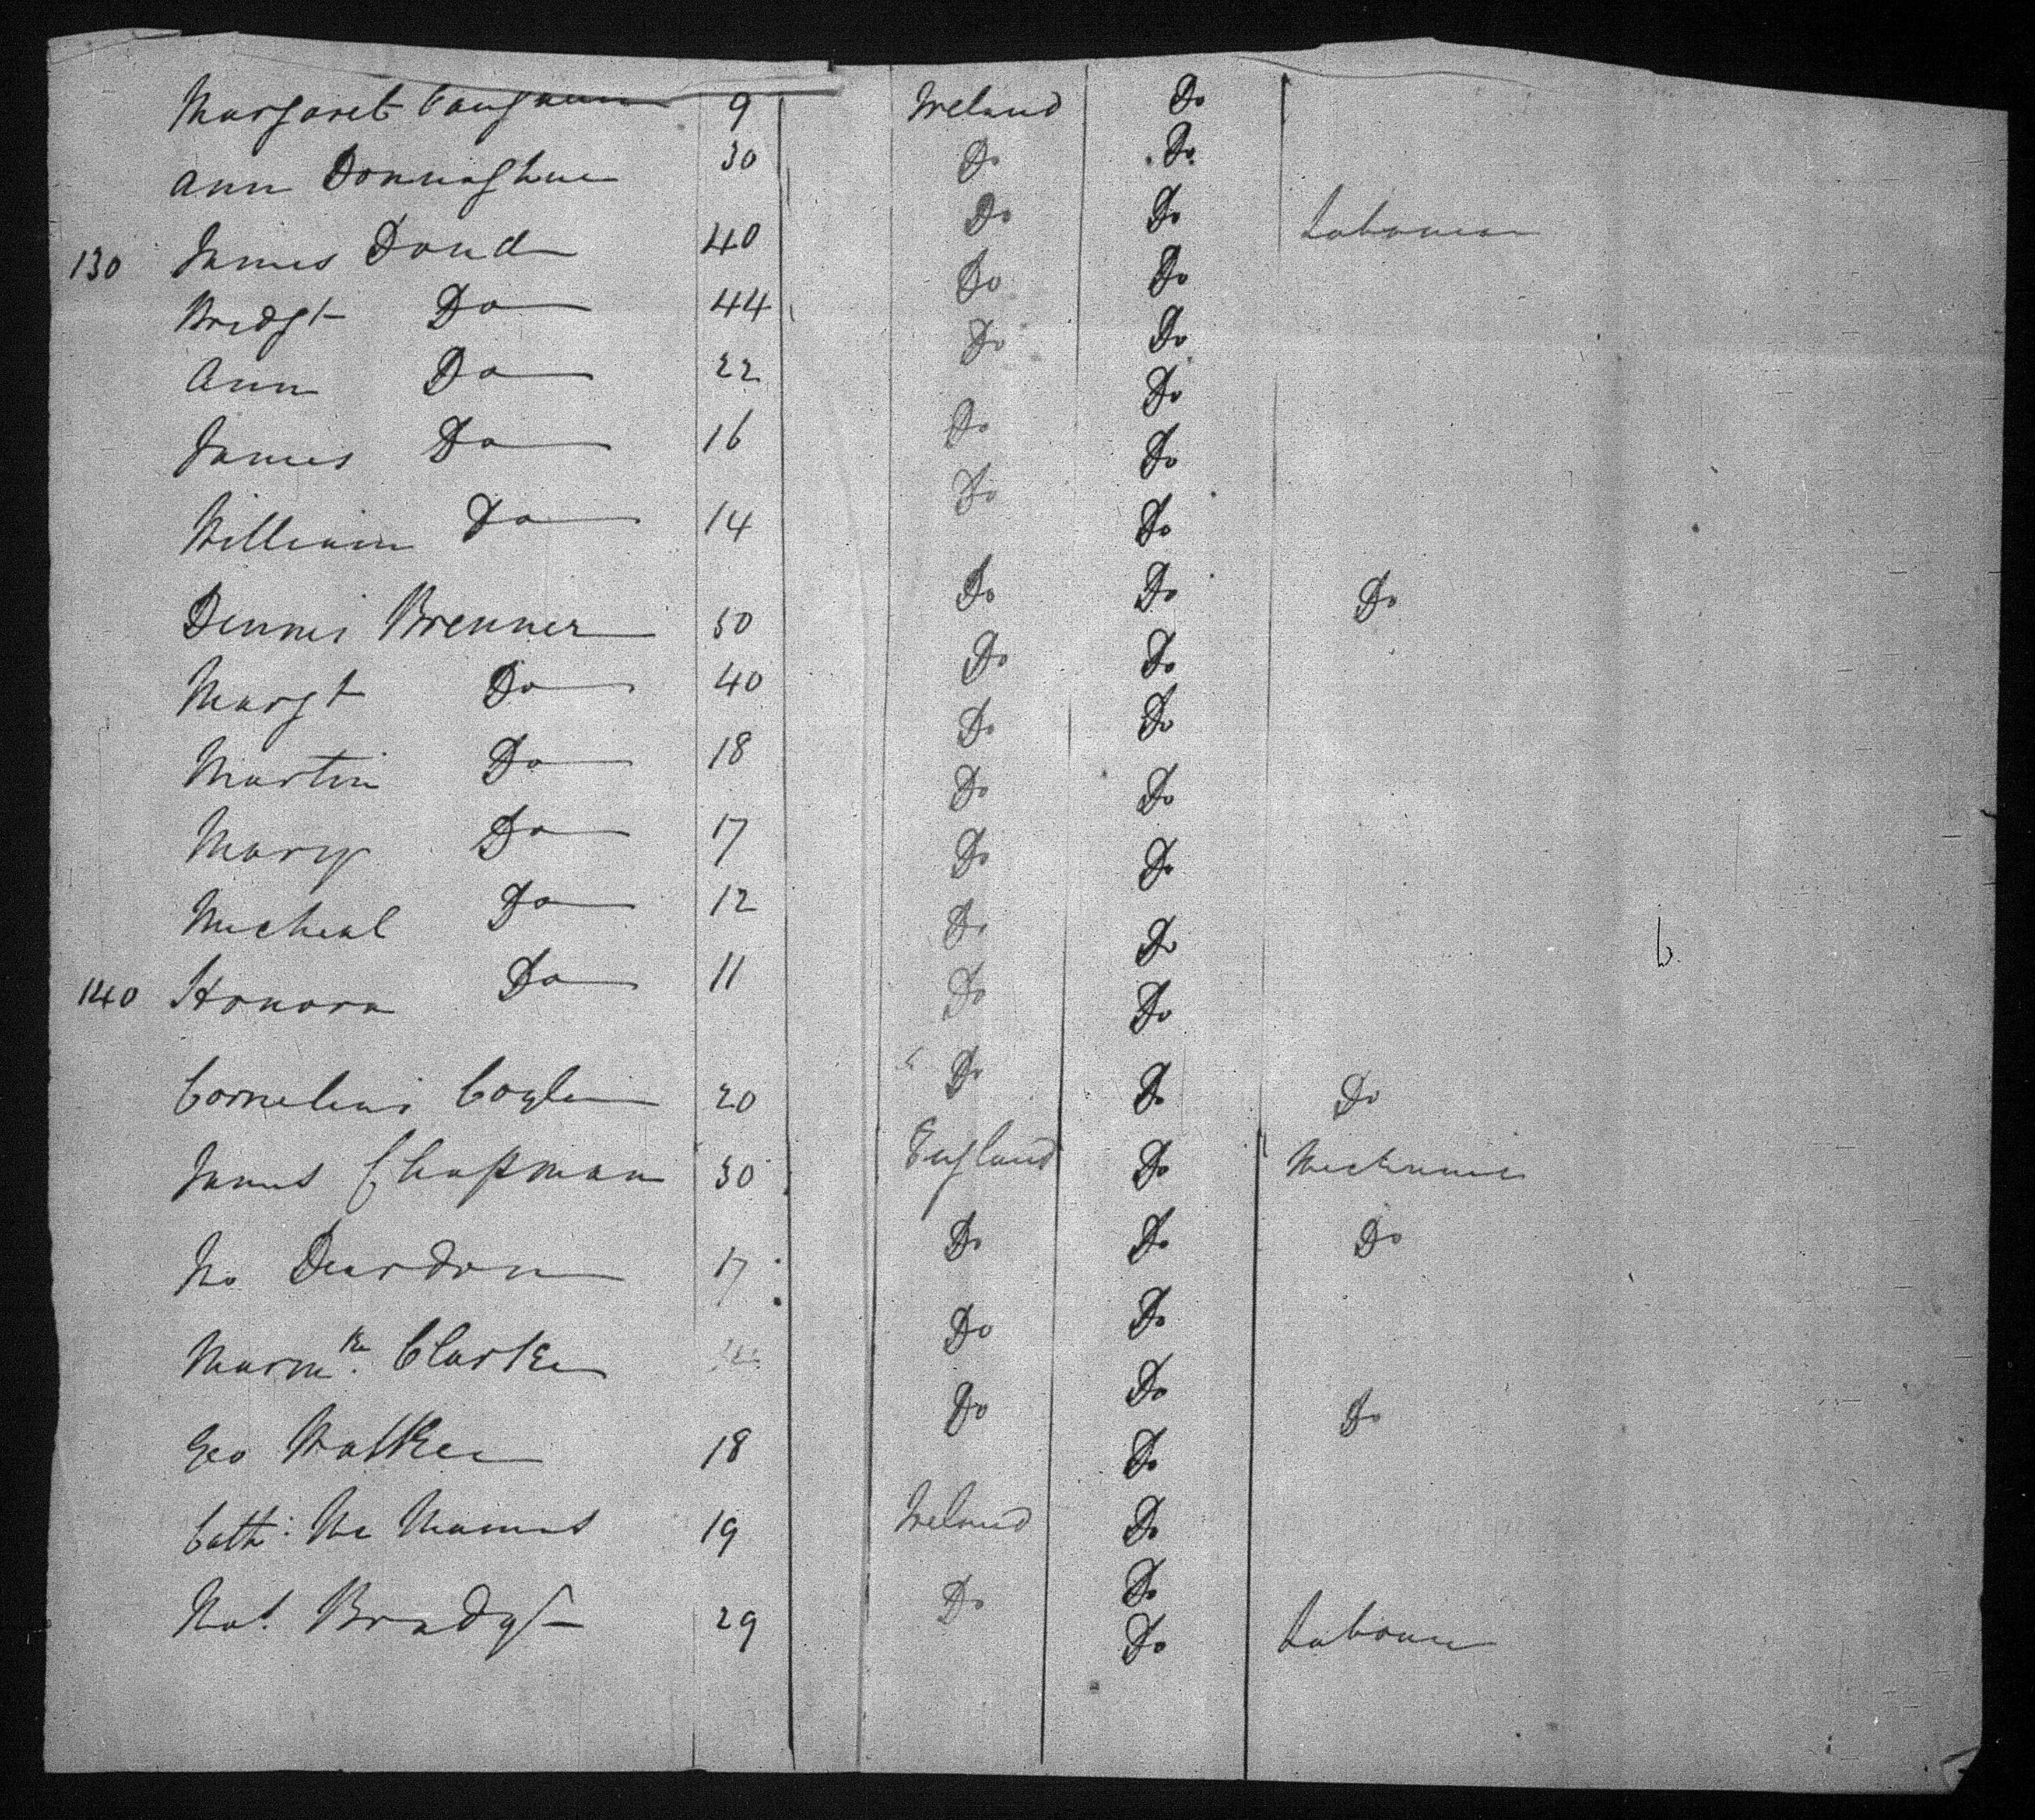 Margaret 9 Ireland Do
Ann Donnaghue 30 Do Do
130 James Doud 40 Do Do Labourer
Bridgt Do 44 Do Do
Ann Do 22 Do Do
James Do 16 Do Do
William Do 14 Do Do
Do
Dennis Brenner 50 Do Do Do
Margt Do 40 Do Do
Martin Do 18 Do Do
Mary Do 17 Do Do
Micheal Do 12 Do Do
140 Honora Do 11 Do Do
Do
Cornelius Coyle 20 Do Do Do
James Chapman 30 England Do Mechanic
Deardon 17 Do Do Do
Clarke Do Do
Geo Walker 18 Do Do Do
Do
Cath: Mc Manus 19 Ireland Do
Do
Brady 29 Do Do Labourer